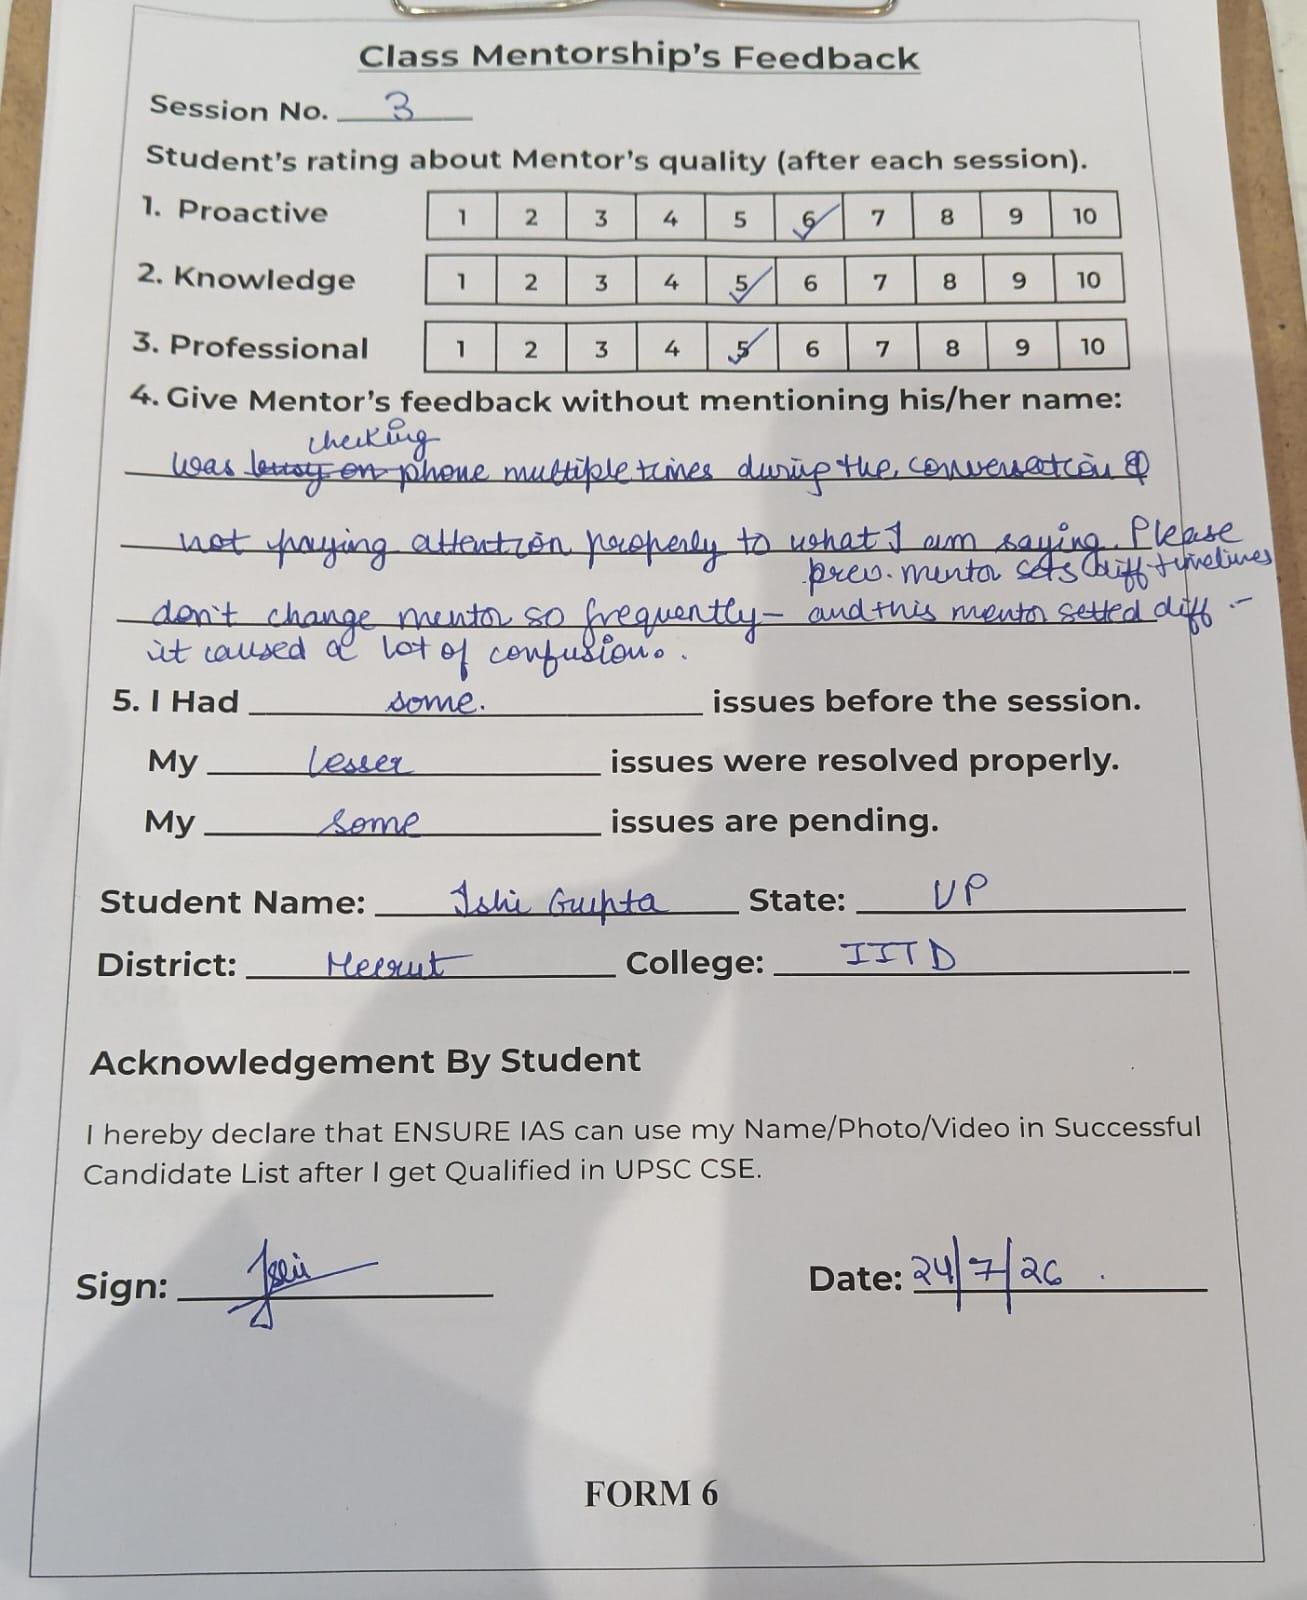 Class Mentorship's Feedback
Session No. 3
Student's rating about Mentor's quality (after each session).
1. Proactive 1 2 3 4 5 6 7 8 9 10
2. Knowledge 1 2 3 4 5 6 7 8 9 10
3. Professional 1 2 3 4 5 6 7 8 9 10
4. Give Mentor's feedback without mentioning his/her name:
checking
was on phone multiple times during the conversation &
not paying attention properly to what I am saying. Please
prev. mentor sets diff timelines
don't change mentor so frequently – and this mentor setted diff –
it caused a lot of confusion.
5. I Had some. issues before the session.
My lesser issues were resolved properly.
My some issues are pending.
Student Name: Ishi Gupta State: UP
District: Meerut College: IITD
Acknowledgement By Student
I hereby declare that ENSURE IAS can use my Name/Photo/Video in Successful
Candidate List after I get Qualified in UPSC CSE.
Sign: Ishi Date: 24/7/26
FORM 6